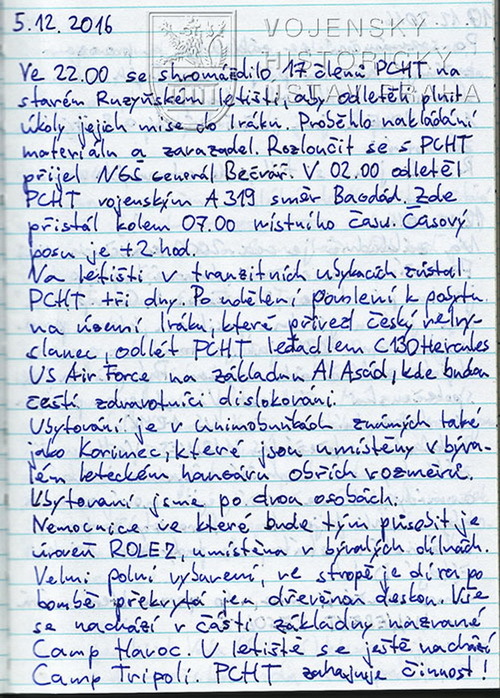 5.12. 2016
VOJENSKÝ
HISTORICKÝ
ÚSTAV PRAHA
Ve 22.00 se shromáždilo 17 členů PCHT na
starém Ruzyňském letišti, aby odletěli plnit
úkoly jejich mise do Iráku. Proběhlo nakládání
materiálu a zavazadel. Rozloučit se s PCHT
přijel NGŠ generál Bečvář. V 02.00 odletěl
PCHT vojenským A319 směr Bagdád. Zde
přistál kolem 07.00 místního času. Časový
posun je +2 hod.
Na letišti v tranzitních ubykacích zůstal
PCHT tři dny. Po udělení povolení k pobytu
na území Iráku, které přivezl český velvy-
slanec, odlét PCHT letadlem C130 Hercules
US Air Force na základnu Al Asád, kde budou
čeští zdravotníci dislokováni.
Ubytování je v unimobuňkách známých také
jako Korimec, které jsou umístěny v býva-
lém leteckém hangáru obřích rozměrů.
Ubytovaní jsme po dvou osobách.
Nemocnice ve které bude tým působit je
úroveň ROLE2, umístěna v bývalých dílnách.
Velmi polní vybavení, ve stropě je díra po
bombě překrytá jen dřevěnou deskou. Vše
se nachází v části základny nazvané
Camp Havoc. U letiště se ještě nachází
Camp Tripoli. PCHT zahajuje činnost!